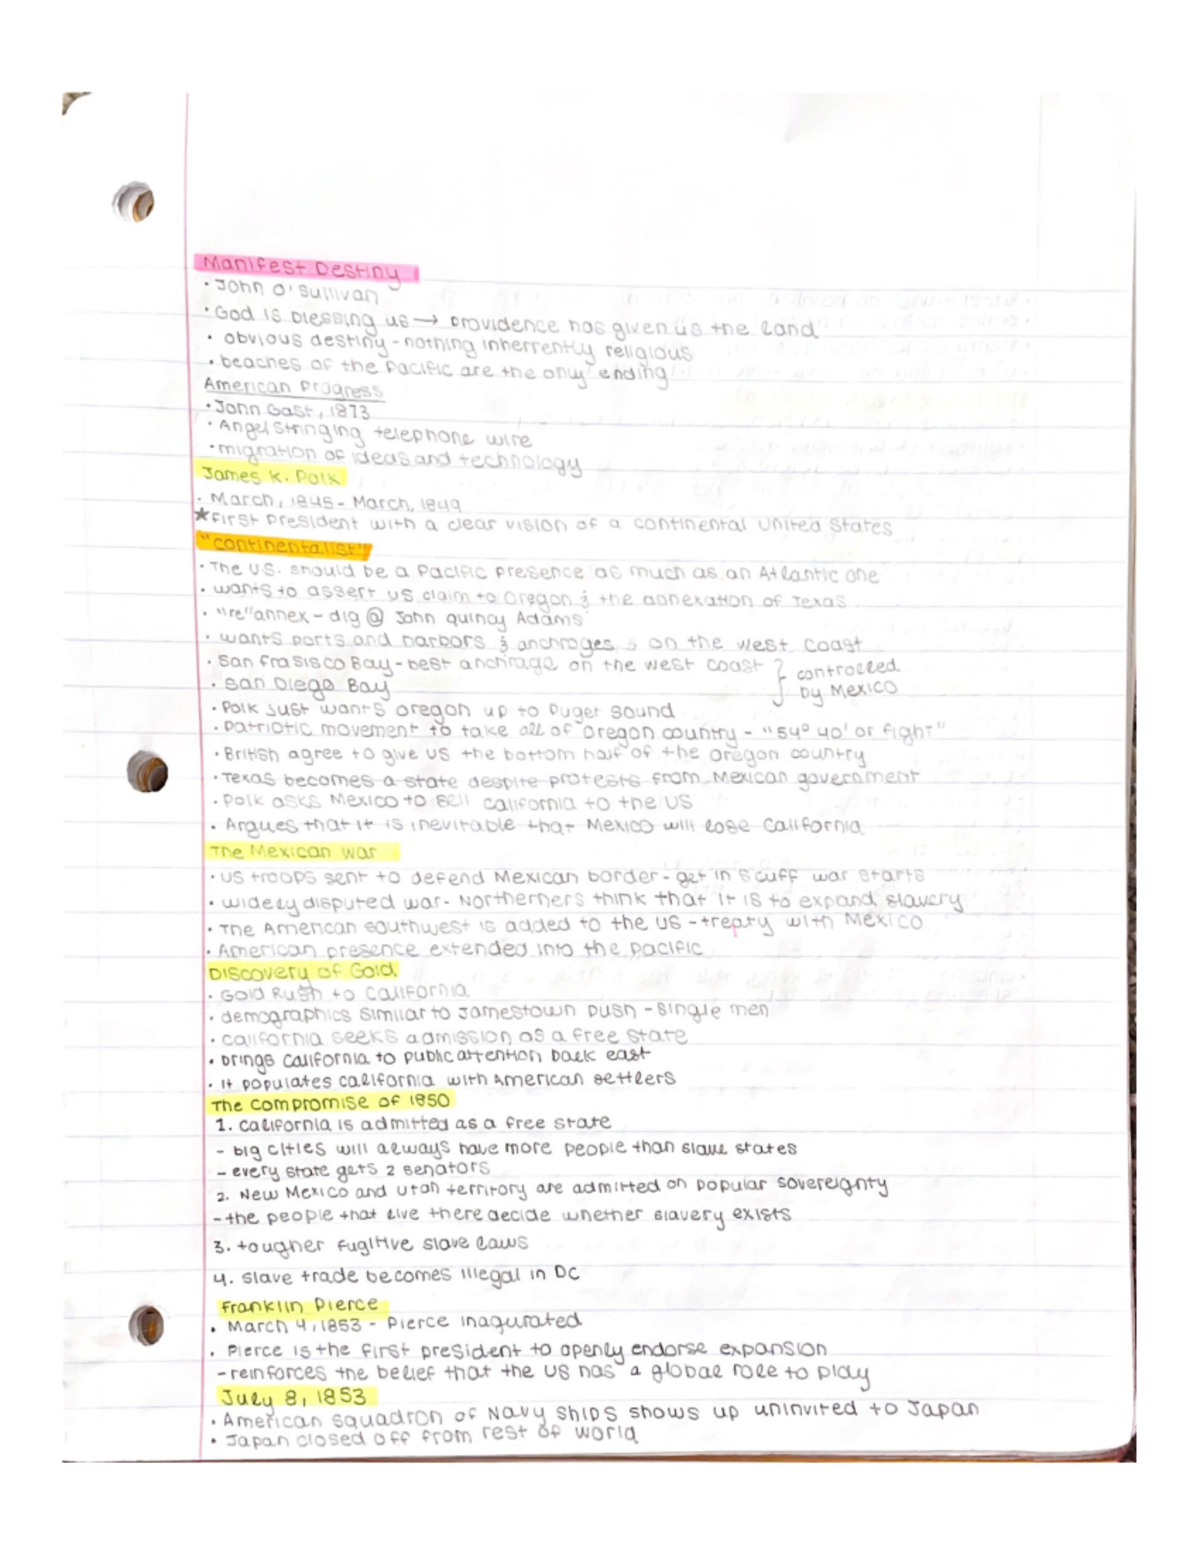 Manifest Destiny
• John O'Sullivan
• God is blessing us → providence has given us the land
• obvious destiny - nothing inherrently religious
• beaches of the Pacific are the only ending
American Progress
• John Gast, 1873
• Angel stringing telephone wire
• migration of ideas and technology
James K. Polk
• March, 1845 - March, 1849
★ First President with a clear vision of a continental United States
"continentalist"
• The U.S. should be a Pacific presence as much as an Atlantic one
• wants to assert US claim to Oregon & the annexation of Texas
• "re"annex - dig @ John quincy Adams
• wants ports and harbors & anchroges on the west coast
• San Frasisco Bay - best anchrage on the west coast } controlled
• San Diego Bay by Mexico
• Polk just wants oregon up to Puget Sound
• Patriotic movement to take all of Oregon country - "54° 40' or fight"
• British agree to give US the bottom half of the Oregon country
• Texas becomes a state despite protests from Mexican government
• Polk asks Mexico to sell california to the US
• Argues that it is inevitable that Mexico will lose California
The Mexican War
• US troops sent to defend Mexican border - get in scuff war starts
• widely disputed war - Northerners think that it is to expand slavery
• The American southwest is added to the US - treaty with Mexico
• American presence extended into the pacific
Discovery of Gold
• Gold Rush to California
• demographics similar to Jamestown push - single men
• california seeks admission as a free state
• brings California to public attention back east
• it populates california with American settlers
The Compromise of 1850
1. California is admitted as a free state
- big cities will always have more people than slave states
- every state gets 2 senators
2. New Mexico and Utah territory are admitted on popular sovereignty
- the people that live there decide whether slavery exists
3. tougher fugitive slave laws
4. slave trade becomes illegal in DC
Franklin Pierce
• March 4, 1853 - Pierce inagurated
• Pierce is the first president to openly endorse expansion
- reinforces the belief that the US has a global role to play
July 8, 1853
• American squadron of Navy ships shows up uninvited to Japan
• Japan closed off from rest of world